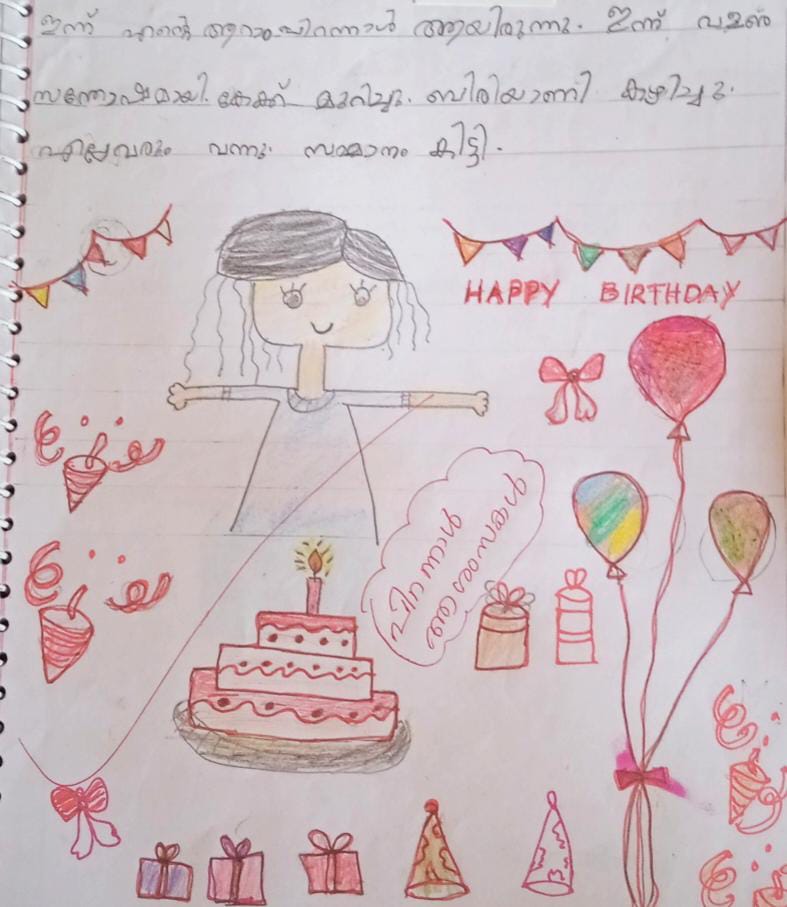 ഇന്ന് എന്റെ ആറാംപിറന്നാൾ ആയിരുന്നു. ഇന്ന് വളരെ
സന്തോഷമായി. കേക്ക് മുറിച്ചു. ബിരിയാണി കഴിച്ചു.
എല്ലാവരും വന്നു. സമ്മാനം കിട്ടി.
HAPPY BIRTHDAY
പിറന്നാൾ
ആശംസകൾ